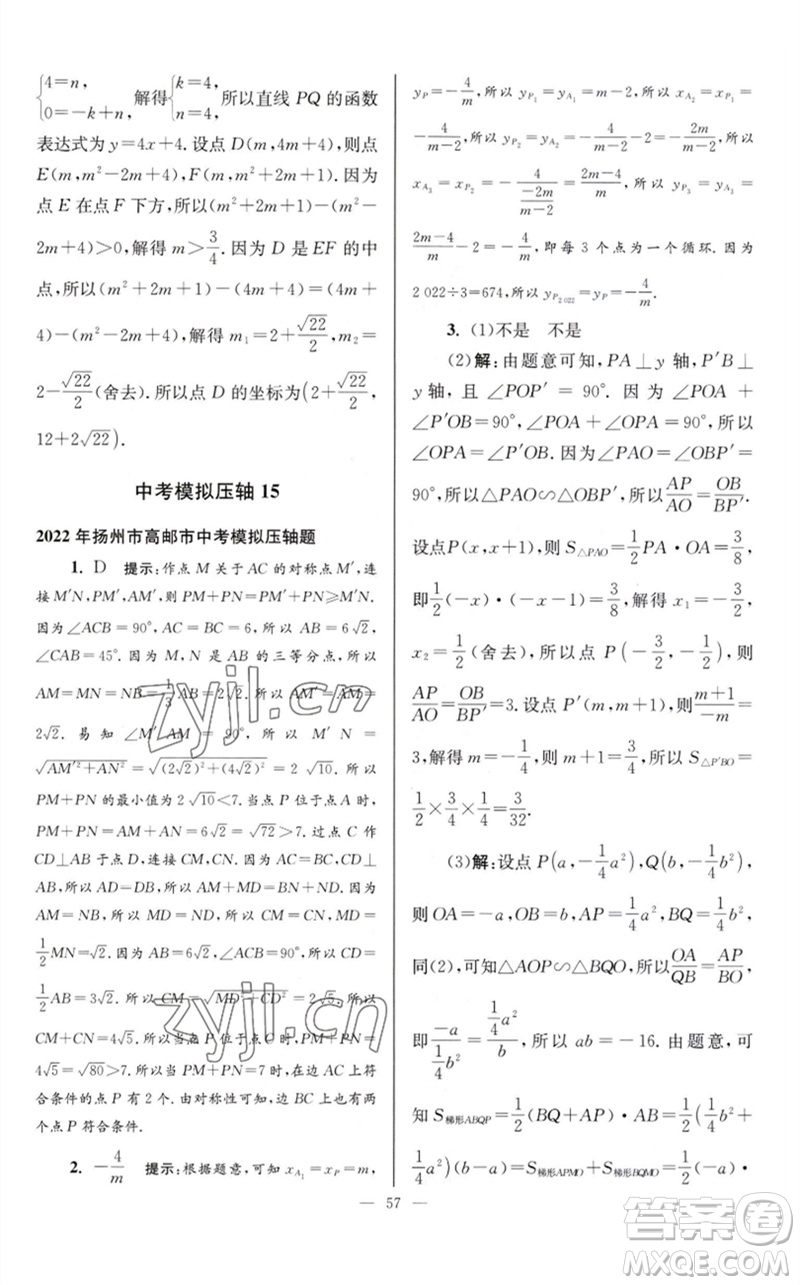 {4=n, 0=-k+n, 解得{k=4, n=4, 所以直线 PQ 的函数
表达式为 y=4x+4. 设点 D(m,4m+4),则点
E(m,m²-2m+4),F(m,m²+2m+1). 因为
点 E 在点 F 下方,所以(m²+2m+1)-(m²-
2m+4)>0,解得 m>3/4. 因为 D 是 EF 的中
点,所以(m²+2m+1)-(4m+4)=(4m+
4)-(m²-2m+4),解得 m₁=2+√22/2,m₂=
2-√22/2(舍去). 所以点 D 的坐标为(2+√22/2,
12+2√22).
中考模拟压轴 15
2022 年扬州市高邮市中考模拟压轴题
1. D 提示:作点 M 关于 AC 的对称点 M′,连
接 M′N,PM′,AM′,则 PM+PN=PM′+PN≥M′N.
因为∠ACB=90°,AC=BC=6,所以 AB=6√2,
∠CAB=45°. 因为 M、N 是 AB 的三等分点,所以
AM=MN=NB=1/3AB=2√2. 所以 AM′=AM=
2√2. 易知∠M′AM=90°,所以 M′N=
√AM′²+AN²=√(2√2)²+(4√2)²=2√10. 所以
PM+PN 的最小值为 2√10<7. 当点 P 位于点 A 时,
PM+PN=AM+AN=6√2=√72>7. 过点 C 作
CD⊥AB 于点 D,连接 CM、CN. 所以 AD=BD. 因为
AM=NB,所以 AD-AM=BD-NB. 所以 DM=
1/2MN=√2. 因为 AB=6√2,∠ACB=90°,所以 CD=
1/2AB=3√2. 所以 CM=√MD²+CD²=2√5. 所以
CM+CN=4√5. 所以当点 P 位于点 C 时,PM+PN=
4√5=√80>7. 所以在线段 AC 上,在点 A 的上方,符
合条件的点 P 有 2 个. 由对称性可知,BC上也有两
个点 P 符合条件.
2. -4/m 提示:根据题意,可知 x_{A₁}=x_P=m,
— 57 —
y_P=-4/m,所以 y_{P₁}=y_{A₁}=m-2,所以 x_{A₂}=x_{P₁}=
-4/(m-2),所以 y_{P₂}=y_{A₂}=-4/(m-2)-2=-2m/(m-2),所以
x_{A₃}=x_{P₂}=-4/(-2m/(m-2))=(2m-4)/m,所以 y_{P₃}=y_{A₃}=
(2m-4)/m-2=-4/m,即每 3 个点为一个循环. 因为
2 022÷3=674,所以 y_{P₂₀₂₂}=y_P=-4/m.
3. (1)不是 不是
(2)解:由题意可知,PA⊥y 轴,P′B⊥
y 轴,且∠POP′=90°. 因为∠POA+
∠P′OB=90°,∠POA+∠OPA=90°,所以
∠OPA=∠P′OB. 因为∠PAO=∠OBP′=
90°,所以△PAO∽△OBP′,所以AP/AO=OB/BP′.
设点P(x,x+1),则 S△PAO=1/2PA·OA=3/8,
即1/2(-x)·(-x-1)=3/8,解得 x₁=-3/2,
x₂=1/2(舍去),所以点 P(-3/2,-1/2),则
AP/AO=OB/BP′=3. 设点 P′(m,m+1),则(m+1)/-m=
3,解得 m=-3/4,则 m+1=1/4,所以 S△P′BO=
1/2×3/4×1/4=3/32.
(3)解:设点 P(a,-1/4a²),Q(b,-1/4b²),
则 OA=-a,OB=b,AP=1/4a²,BQ=1/4b²,
同(2),可知△AOP∽△BQO,所以OA/QB=AP/BO,
即-a/(1/4b²)=(1/4a²)/b,所以 ab=-16. 由题意,可
知 S梯形ABQP=1/2(BQ+AP)·AB=1/2(1/4b²+
1/4a²)(b-a)=S梯形APMO+S梯形BQMO=1/2(-a)·
zyjl.cn
zyjl.cn
答案圈
MXQE.COM